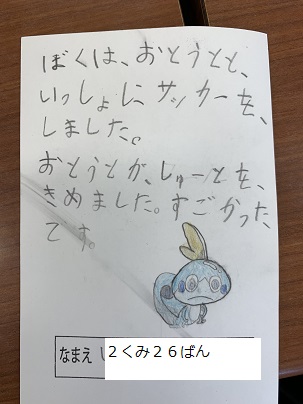 ぼくは、おとうとと、
いっしょに、サッカーを、
しました。
おとうとが、しゅーとを、
きめました。すごかった
です。
なまえ
2くみ26ばん